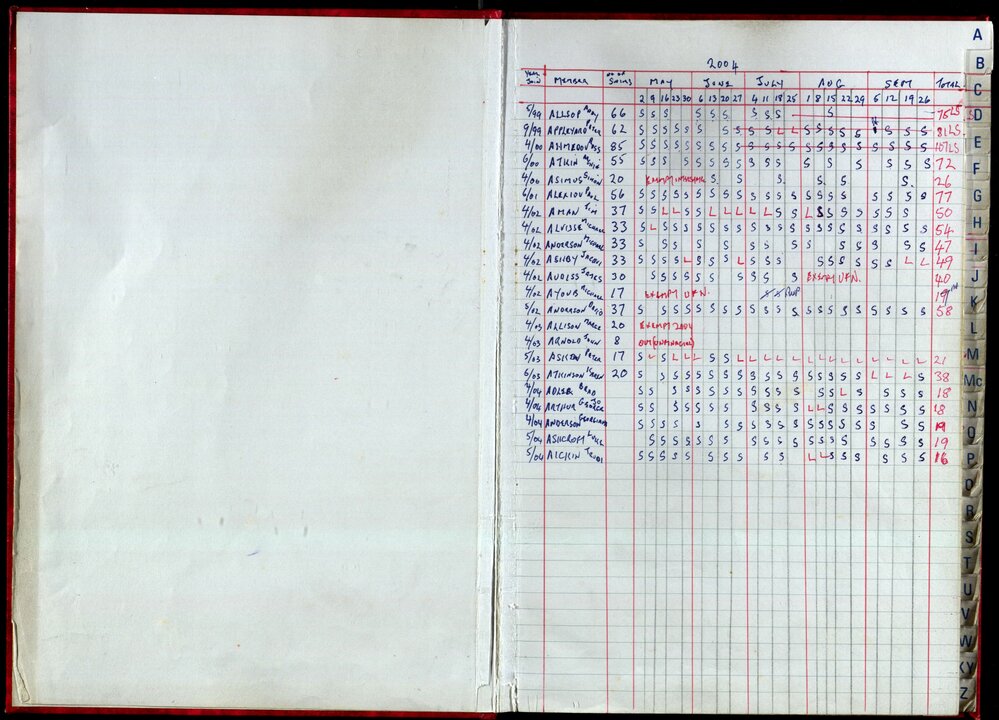 2004
YEAR JOIN MEMBER NO OF SWIMS MAY JUNE JULY AUG SEPT TOTAL
2 9 16 23 30 6 13 20 27 4 11 18 25 1 8 15 22 29 5 12 19 26
5/99 ALLSOP 66 S S S S S S S S S S 75 LS
9/99 APPLEYARD PETER 62 S S S S S S S S S S S L L S S S S S S S S 81 LS
4/00 AHMEDOU ROSS 85 S S S S S S S S S S S S S S S S S S S S S S 107 LS
6/00 ATKIN 55 S S S S S S S S S S S S S S S S 72
4/00 ASIMUS SIMON 20 EXEMPT S S S S S S. 26
6/01 ALEXIOU PAUL 56 S S S S S S S S S S S S S S S S S S S S S 77
4/02 AMAN TIM 37 S S L L S S L L L L L S S L S S S S S S S 50
4/02 ALVISSE MICHAEL 33 S L S S S S S S S S S S S S S S S S S S S S 54
4/02 ANDERSON MICHAEL 33 S S S S S S S S S S S S S S 47
4/02 ASHBY JACQUI 33 S S S S L S S S L S S S S S S S S S L L 49
4/02 AUDISS JAMES 30 S S S S S S S S S S EXEMPT UFN. 40
4/02 AYOUB MICHAEL 17 EXEMPT UFN. S S 19
5/02 ANDERSON DAVID 37 S S S S S S S S S S S S S S S S S S S S S 58
4/03 ALLISON 20 EXEMPT 2004
4/03 ARNOLD JOHN 8 OUT (UNFINANCIAL)
5/03 ASHTON PETER 17 S L S L L L S S L L L L L L L L L L L L L 21
6/03 ATKINSON KAREN 20 S S S S S S S S S S S S S S S S S L L L S 38
4/04 ADLER BRAD S S S S S S S S S S S S S L S S S S 18
4/04 ARTHUR GEORGE S S S S S S S S S S S L L S S S S S S S 18
4/04 ANDERSON GEORGINA S S S S S S S S S S S S S S S S S S S 19
5/04 ASHCROFT LUKE S S S S S S S S S S S S S S S S S S S 19
5/04 S S S S S S S S S S S L L S S S S S S 16
A
B
C
D
E
F
G
H
I
J
K
L
M
Mc
N
O
P
Q
R
S
T
U
V
W
XY
Z